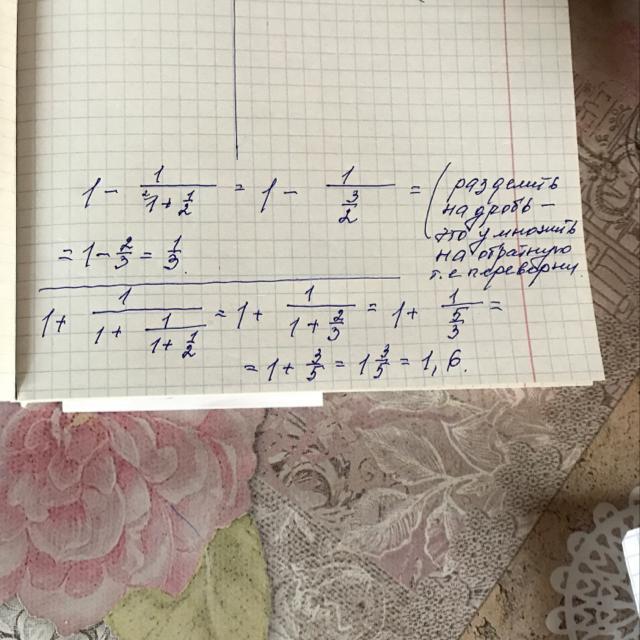 1 - 1/(1 + 1/2) = 1 - 1/(3/2) = (разделить
на дробь -
это умножить
на обратную
т.е переверну
= 1 - 2/3 = 1/3.
1 + 1/(1 + 1/(1 + 1/2)) = 1 + 1/(1 + 2/3) = 1 + 1/(5/3) =
= 1 + 3/5 = 1 3/5 = 1,6.